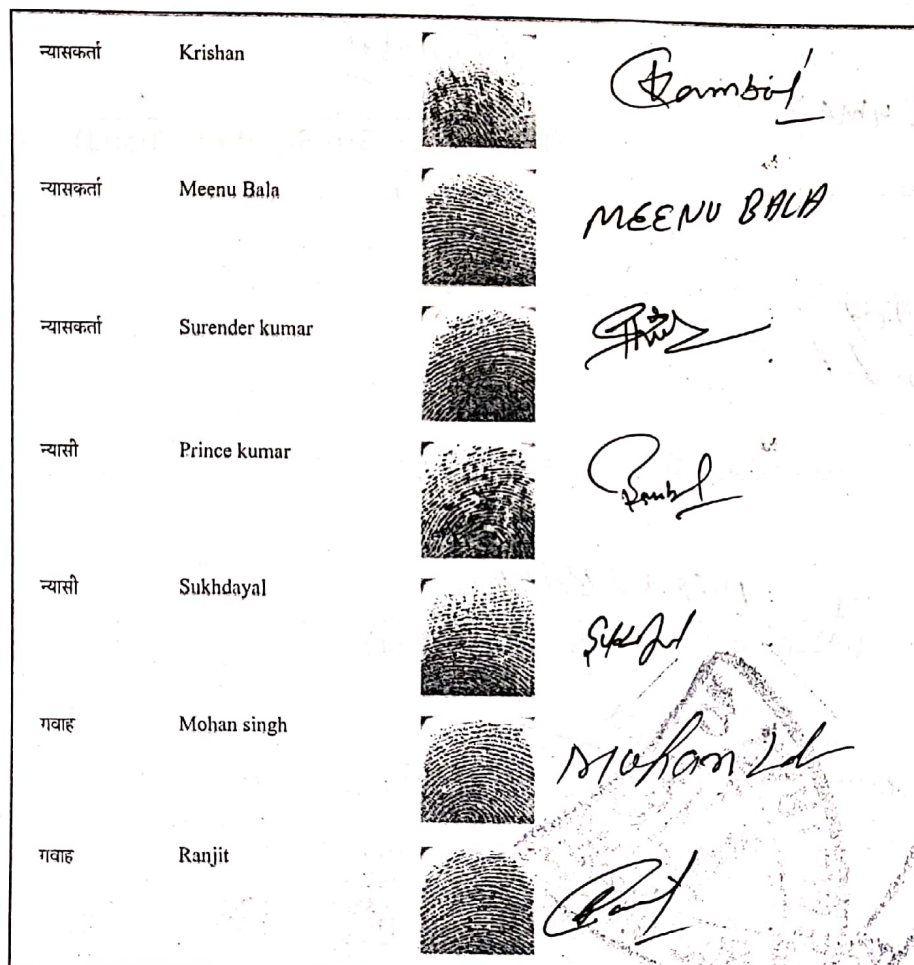 न्यासकर्ता Krishan Kamboj
न्यासकर्ता Meenu Bala MEENU BALA
न्यासकर्ता Surender kumar
न्यासी Prince kumar
न्यासी Sukhdayal
गवाह Mohan singh Mohan
गवाह Ranjit